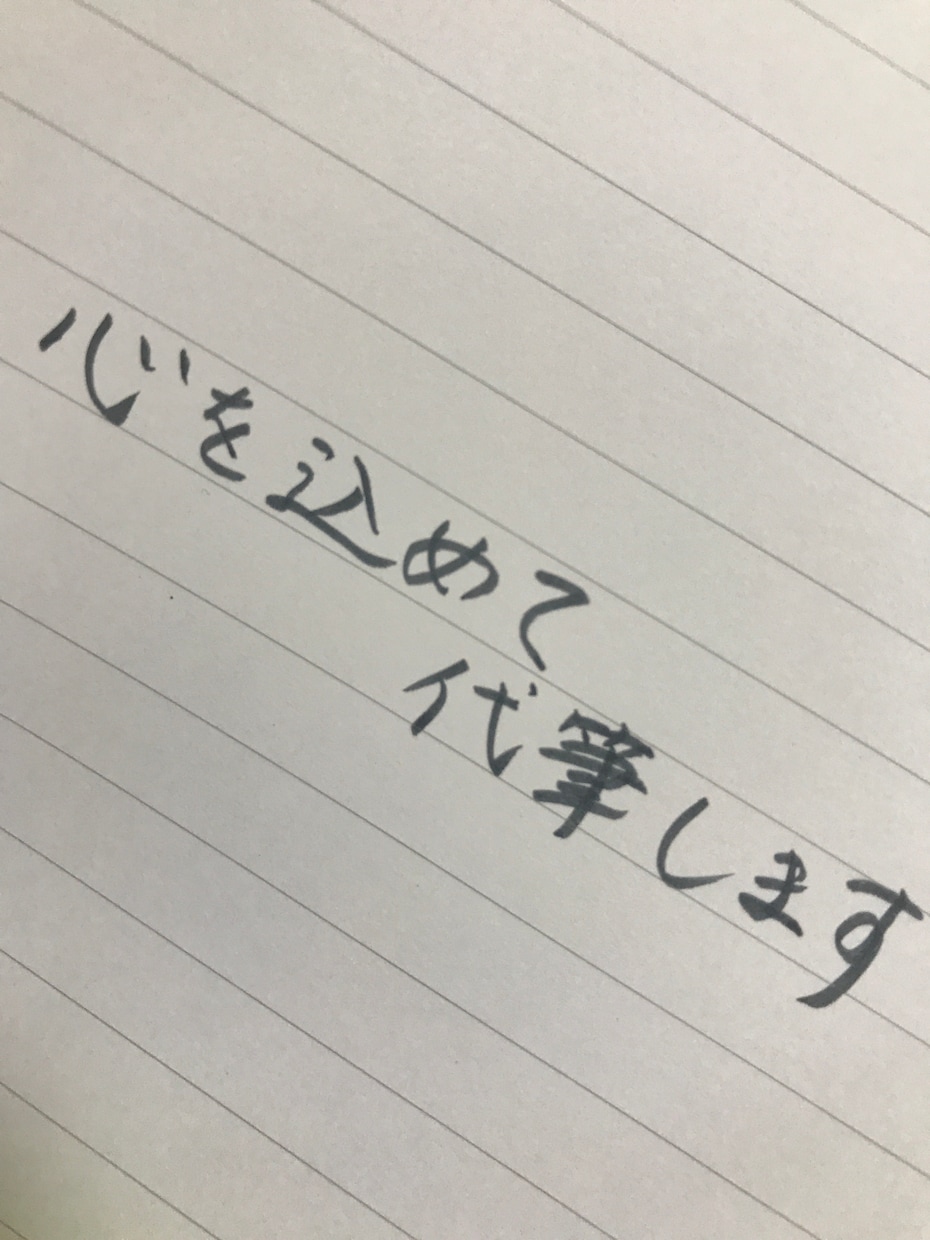 心を込めて
代筆します